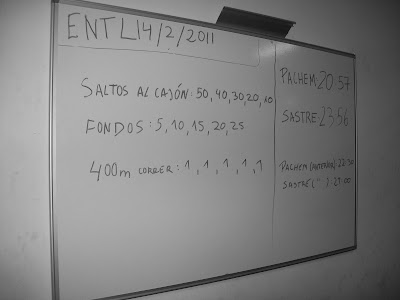 ENT L 14/2/2011
SALTOS AL CAJÓN: 50, 40, 30, 20, 10
FONDOS: 5, 10, 15, 20, 25
400m CORRER: 1, 1, 1, 1, 1
PACHEM: 20:57
SASTRE: 23:56
PACHEM (ANTERIOR): 22:30
SASTRE (" ): 27:00